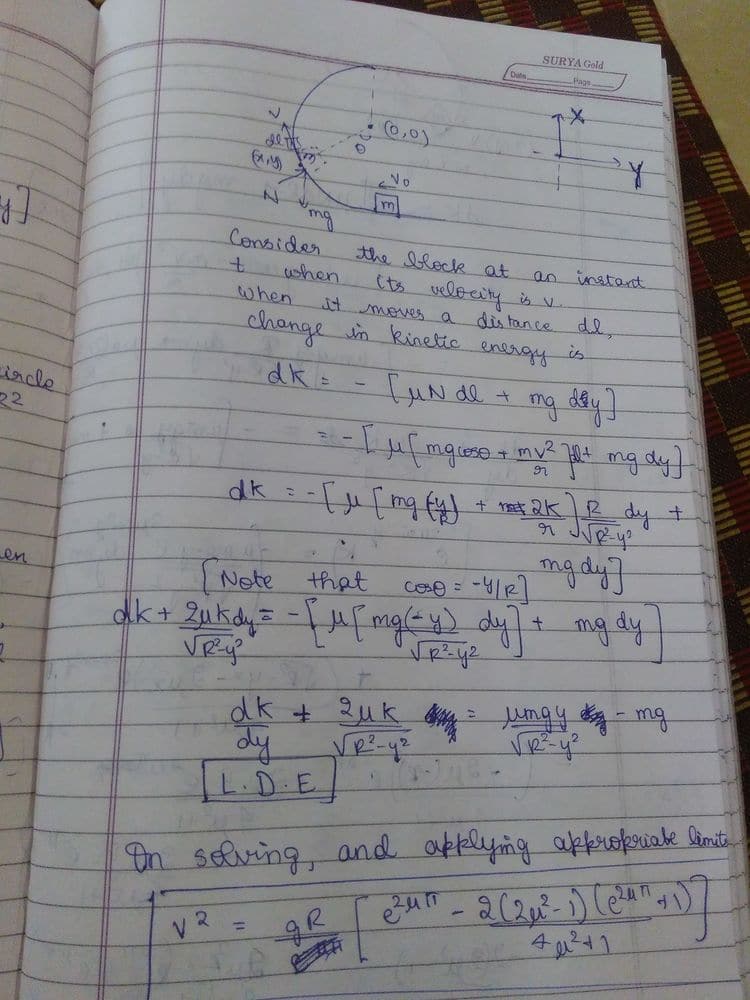 SURYA Gold
Date Page
y]
X
V
(0,0)
dl
m
θ
(x,y)
v0
Y
N
m
mg
Consider the block at an instant
t when its velocity is v.
when it moves a distance dl,
change in kinetic energy is
ircle
R2
dk = - [μN dl + mg dy]
= - [μ[mgcosθ + mv²/r]dl + mg dy]
dk = - [μ[mg(-y/R) + 2K/r] R/√R²-y² dy +
mg dy]
en
[Note that cosθ = -y/R]
dk + 2μkdy/√R²-y² = - [μ[mg(-y)/√R²-y² dy] + mg dy]
dk/dy + 2μk/√R²-y² = μmgy/√R²-y² - mg
L.D.E
On solving, and applying appropriate limits
v² = gR [e^2μπ - 2(2μ²-1)(e^2μπ+1)/4μ²+1]